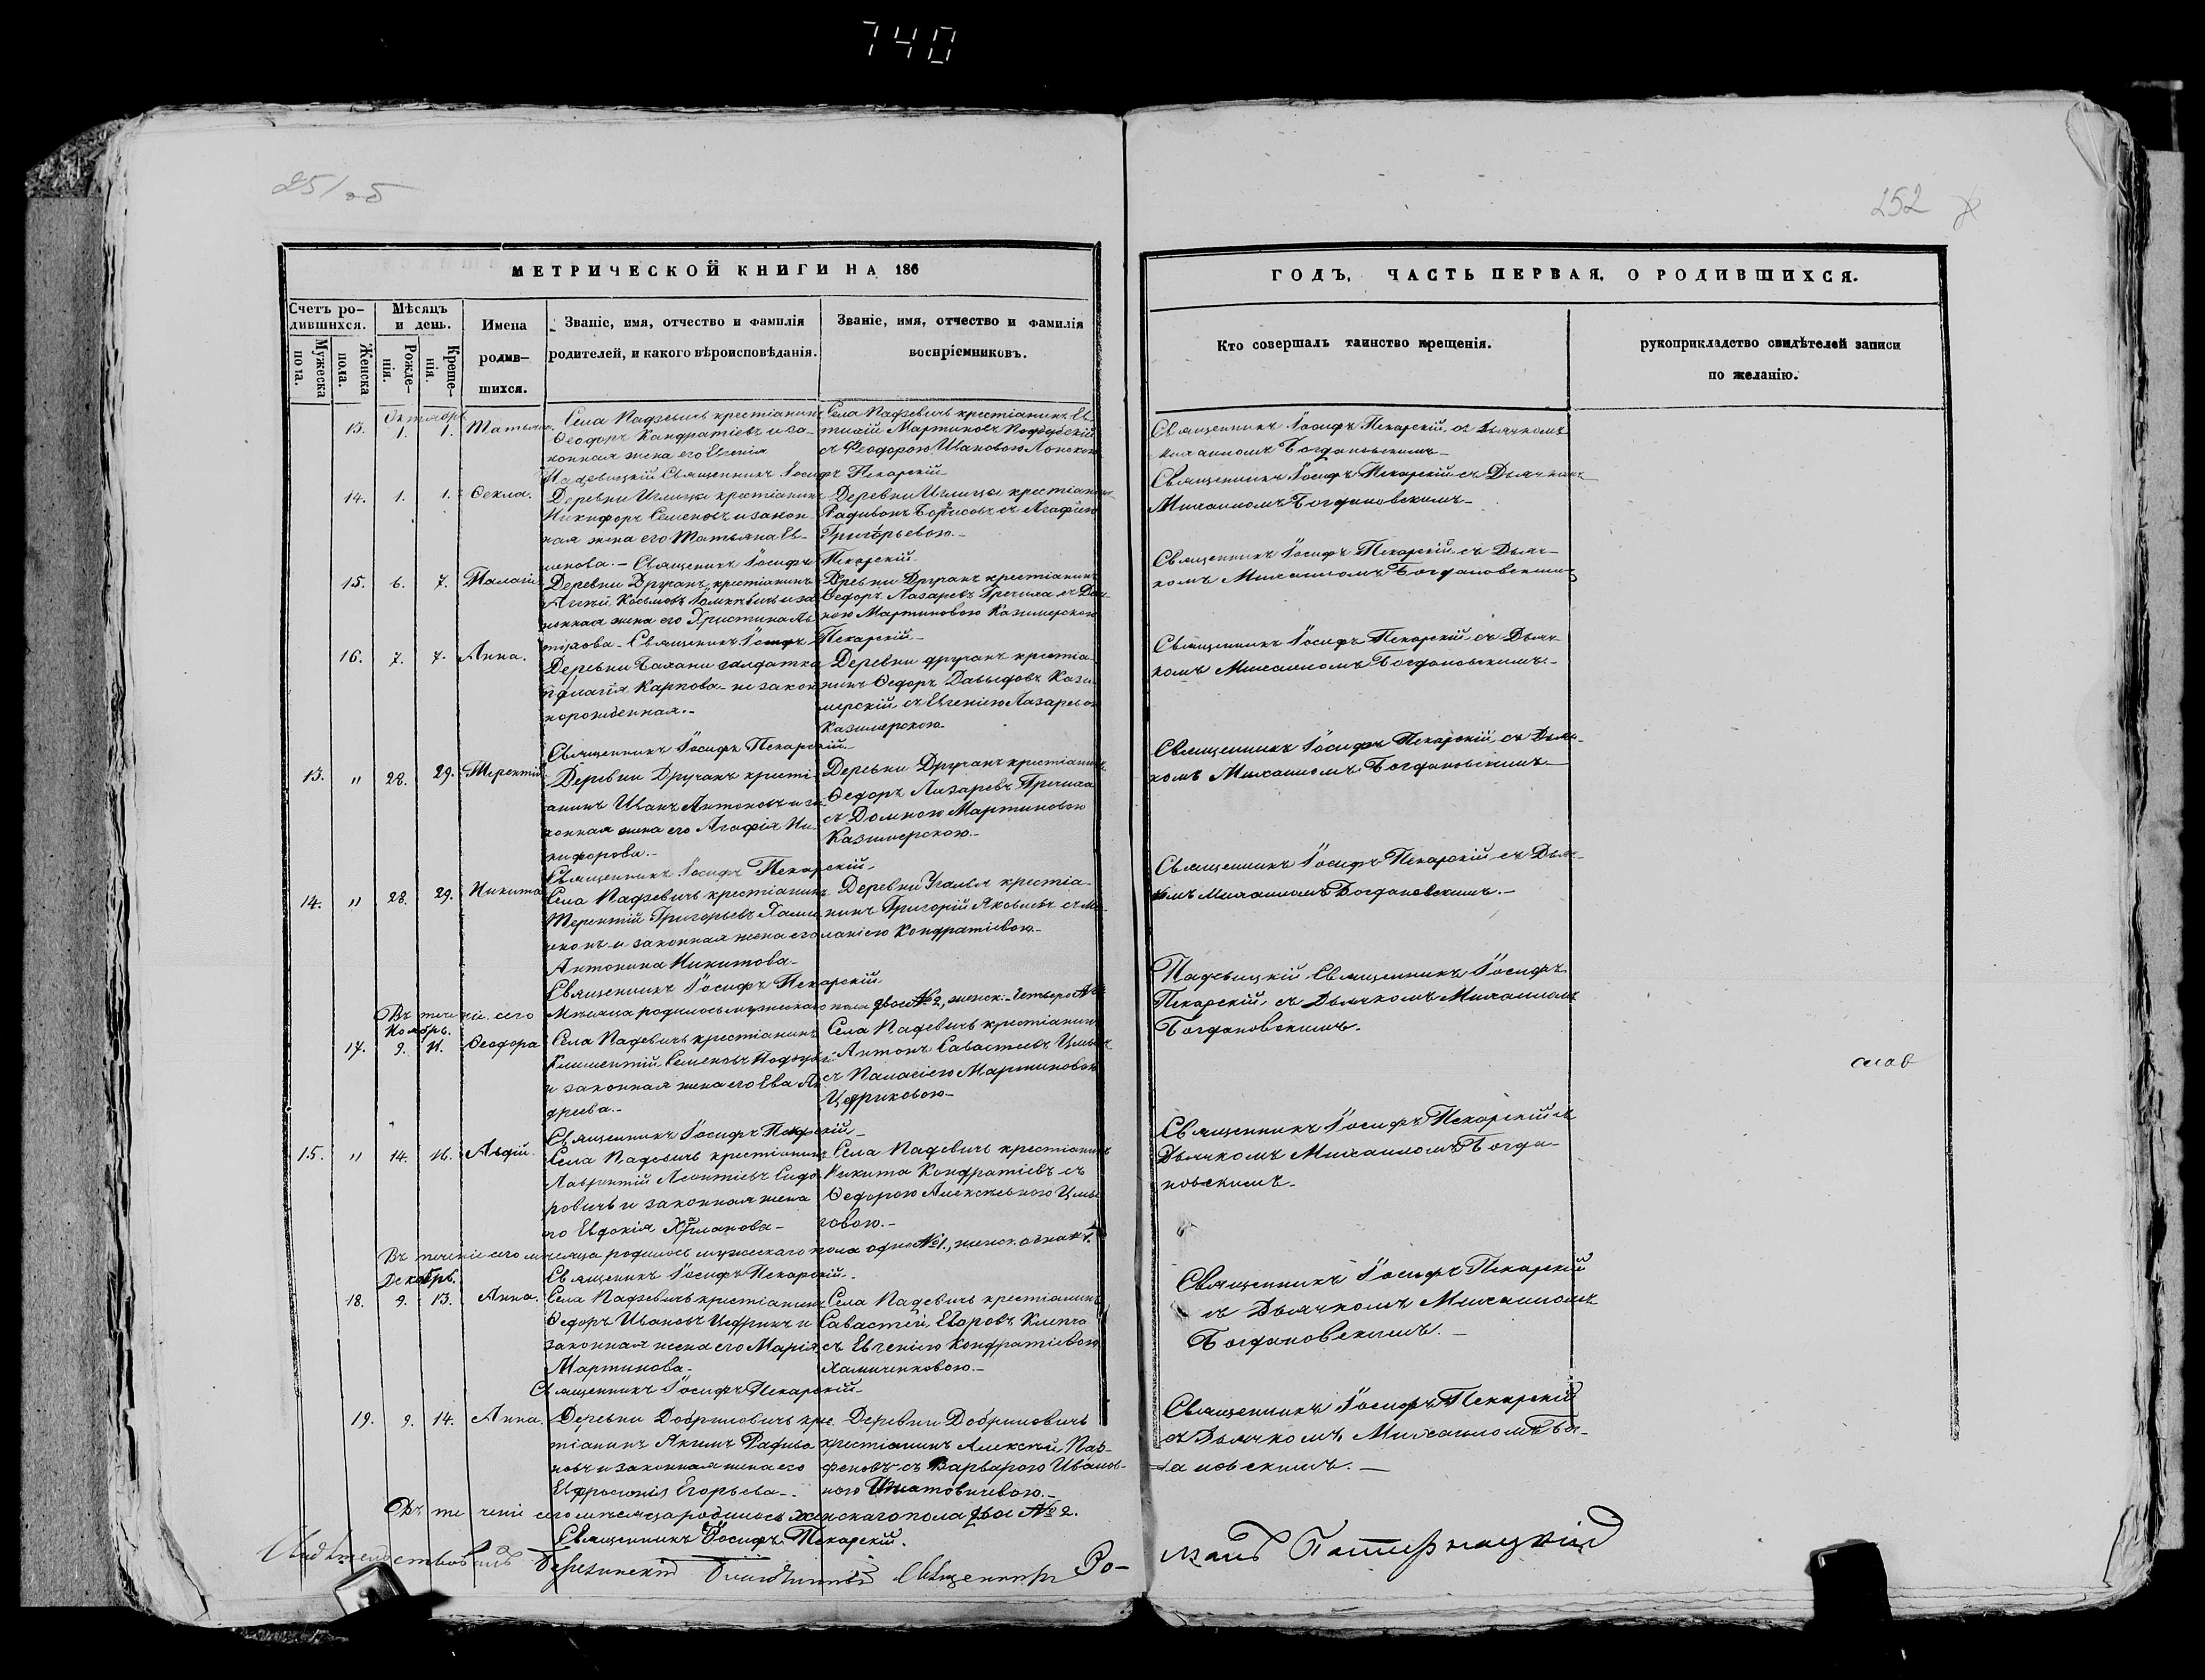 740
251 об
252
МЕТРИЧЕСКОЙ КНИГИ НА 186
ГОДЪ, ЧАСТЬ ПЕРВАЯ, О РОДИВШИХСЯ.
Счетъ ро-
дившихся.
Мужеска
пола.
Женска
пола.
Мѣсяцъ
и день.
Рожде-
нія.
Креще-
нія.
Имена
родив-
шихся.
Званіе, имя, отчество и фамилія
родителей, и какого вѣроисповѣданія.
Званіе, имя, отчество и фамилія
воспріемниковъ.
Кто совершалъ таинство крещенія.
рукоприкладство свидѣтелей записи
по желанію.
Октябрь
13. 1. 1. Татьяна.
Села Падзевичь крестіанинъ
Ѳеодоръ Кандратіевъ и за-
конная жена его Евгенія
Села Падзевичь крестіанинъ Ев-
тихій Мартиновъ
съ Ѳеодорою Ивановою
Священникъ Іосифъ Пекарскій, съ Дьячкомъ
Михаиломъ Богдановскимъ
Падевицкій Священникъ Іосифъ Пекарскій
14. 1. 1. Ѳекла.
Деревни Углицы крестіанинъ
Никифоръ Семеновъ и закон-
ная жена его Татьяна Ев-
менова. - Священикъ Іосифъ Пекарскій.
Деревни Углицы крестіанинъ
Радивонъ Борисовъ съ Агафіею
Григорьевою.
Священникъ Іосифъ Пекарскій съ Дьячкомъ
Михаиломъ Богдановскимъ
15. 6. 7. Палагія
Деревни Дручанъ крестіанинъ
Козьмовъ и за-
конная жена его Христина
Древни Дручанъ крестіанинъ
Ѳедоръ Лазаревъ Гречиха съ Дом-
ною Мартиновою Казимерскою
Священникъ Іосифъ Пекарскій съ Дьяч-
комъ Михаиломъ Богдановскимъ
Священикъ Іосифъ Пекарскій
16. 7. 7. Анна.
Деревни Бахани салдатка
Пелагія Карпова - незакон
норожденная.
Деревни дручанъ крестіа-
нинъ Ѳедоръ Давыдовъ Кази-
мерскій съ Евгеніею Лазаревою
Казимерскою
Священникъ Іосифъ Пекарскій съ Дьяч-
комъ Михаиломъ Богдановскимъ
Священникъ Іосифъ Пекарскій
13. " 28. 29. Терентій
Деревни Дручанъ крестіа-
анинъ Иванъ Антоновъ и за-
конная жена его Агафія Ни-
кифорова.
Деревни Дручанъ крестіанинъ
Ѳедоръ Лазаревъ Гречиха
съ Домною Мартиновою
Казимерскою.
Священникъ Іосифъ Пекарскій съ Дьяч-
комъ Михаиломъ Богдановскимъ
Священникъ Іосифъ Пекарскій
14. " 28. 29. Никита
Села Падзевичь крестіанинъ
Терентій Григорьевъ Хами-
ченокъ и законная жена его
Антонина Никитова
Деревни Угалья крестіа-
нинъ Григорій Яковлевъ съ Ме-
ланіею Кондратіевою
Священникъ Іосифъ Пекарскій съ Дьяч-
комъ Михаиломъ Богдановскимъ.
Священникъ Іосифъ Пекарскій
Въ теченіе сего Мѣсяца родилось мужескаго пола двое № 2, женск. четверо №
Ноябрь.
17. 9. 11. Ѳеодора
Села Падевичь крестіанинъ
Климентій Семеновъ
и законная жена его Ева Ан-
дреева.
Села Падевичь крестіанинъ
Антонъ Савастеевъ
съ Палагіею Мартиновою
Цедриковою
Падевицкій Священникъ Іосифъ
Пекарскій, съ Дьячкомъ Михаиломъ
Богдановскимъ.
Священникъ Іосифъ Пекарскій
15. " 14. 16. Авдій.
Села Падевичь крестіанинъ
Лаврентій Леонтіевъ Сидо-
ровичь и законная жена
его Евдокія Харланова
Села Падевичь крестіанинъ
Никита Кондратіевъ съ
Ѳедорою Алексѣевною
Священникъ Іосифъ Пекарскій съ
Дьячкомъ Михаиломъ Богда-
новскимъ.
Въ теченіе сего мѣсяца родилось мужескаго пола одно №1., женск. одна №1.
Декабрь.
Священникъ Іосифъ Пекарскій.
18. 9. 13. Анна.
Села Падзевичь крестіанинъ
Ѳедоръ Ивановъ Цедрикъ и
законная жена его Марія
Мартинова.
Села Падевичь крестіанинъ
Савастей Егоровъ
съ Евгеніею Кондратіевою
Хамиченковою.
Священникъ Іосифъ Пекарскій
съ Дьячкомъ Михаиломъ
Богдановскимъ.
Священникъ Іосифъ Пекарскій
19. 9. 14. Анна.
Деревни Добриловичь крес-
тіанинъ Акимъ Радиво-
новъ и законная жена его
Евфросинія Егорьева
Деревни Добриловичь
крестіанинъ Алексѣй Пар-
феновъ съ Варварою Иванов-
ною Игнатовичевою.
Священникъ Іосифъ Пекарскій
съ Дьячкомъ Михаиломъ Бог-
дановскимъ.
Въ теченіе сего мѣсяца родилось женскаго пола двое № 2.
Священникъ Іосифъ Пекарскій.
Свидѣтельствовалъ Березинскій Благочинный Священникъ Ро-
манъ